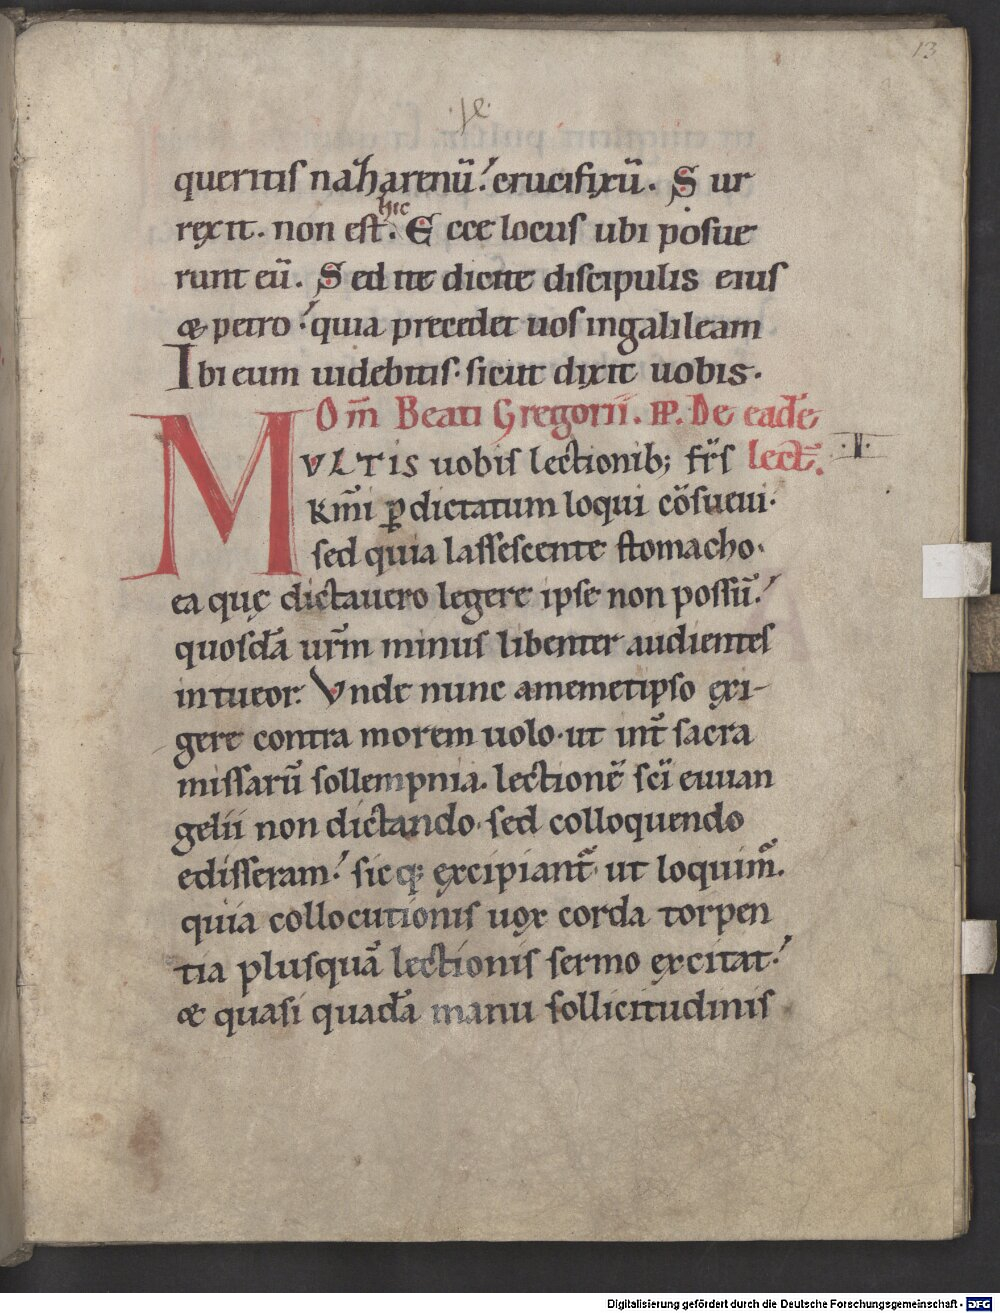 13
queritis nazharenū. crucifixū. Sur
hic
rexit. non est. Ecce locus ubi posue
runt eū. Sed ite dicite discipulis eius
& petro. quia precedet uos in galileam
Ibi eum uidebitis. sicut dixit uobis.
Om̄ Beati Gregorii. PP. De eadē
MVLTIS uobis lectionib; fr̄s lect̄. .I.
Km̄i ꝑ dictatum loqui cōsueui.
sed quia lassescente stomacho.
ea quę dictauero legere ipse non possū.
quosdā ur̄m minus libenter audientes
intueor. Vnde nunc amemetipso exi-
gere contra morem uolo. ut int̄ sacra
missarū sollempnia. lectionē sc̄i euuan
gelii non dictando. sed colloquendo
edisseram. sicq; excipiant̄ ut loquim̄.
quia collocutionis uox corda torpen
tia plusquā lectionis sermo excitat.
& quasi quadā manu sollicitudinis
Digitalisierung gefördert durch die Deutsche Forschungsgemeinschaft - DFG